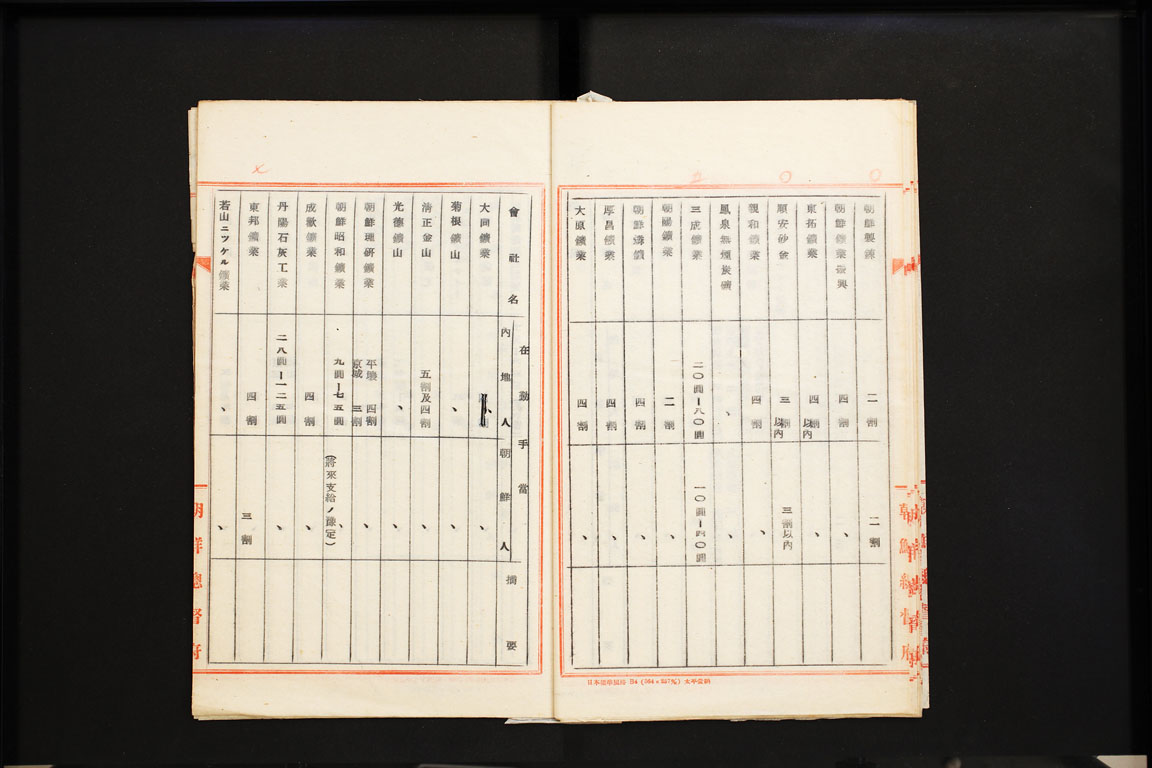 朝鮮製鍊 二割 二割
朝鮮鑛業振興 四割 、
東拓鑛業 四割以內 、
順安砂金 三割以內 三割以內
親和鑛業 四割 、
鳳泉無煙炭礦 、 、
三成鑛業 二〇圓ー八〇圓 一〇圓ー四〇圓
朝陽鑛業 二割 、
朝鮮燐鑛 四割 、
厚昌鑛業 四割 、
大原鑛業 四割 、
日本標準規格 B4
朝鮮總督府
會社名 在勤手當 內地人 朝鮮人 摘要
大同鑛業 、 、
菊根鑛山 、 、
清正金山 五割及四割 、
光德鑛山 、 、
朝鮮理研鑛業 平壤 四割 京城 三割 、
朝鮮昭和鑛業 九圓ー七五圓 、(將來支給ノ豫定)
成歡鑛業 四割 、
丹陽石灰工業 二八圓ー一二五圓 、
東邦鑛業 四割 三割
若山ニツケル鑛業 、 、
朝鮮總督府